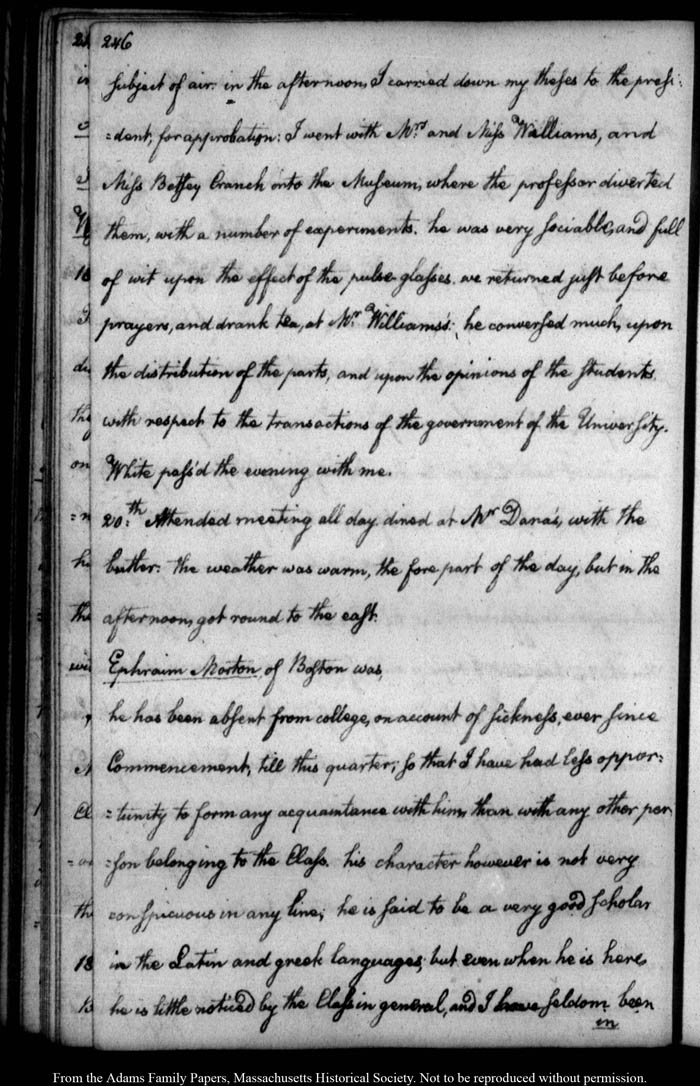 246
subject of air. in the afternoon, I carried down my theses to the presi:
=dent, for approbation: I went with Mrs. and Miss Williams, and
Miss Betsey Cranch onto the Museum, where the professor diverted
them, with a number of experiments. he was very sociable, and full
of wit upon the effect of the pulse glasses. we returned just before
prayers, and drank tea, at Mr. Williams's: he conversed much, upon
the distribution of the parts, and upon the opinions of the students
with respect to the transactions of the government of the University.
White pass'd the evening with me.
20th. Attended meeting all day. dined at Mr. Dana's, with the
butler. the weather was warm, the fore part of the day, but in the
afternoon, got round to the east.
Ephraim Morton, of Boston was,
he has been absent from college, on account of sickness, ever since
Commencement, till this quarter; so that I have had less oppor:
=tunity to form any acquaintance with him, than with any other per
=son belonging to the Class. his character however is not very
conspicuous in any line; he is said to be a very good scholar
in the Latin and greek languages; but even when he is here,
he is little noticed by the Class in general, and I have seldom been
in
From the Adams Family Papers, Massachusetts Historical Society. Not to be reproduced without permission.